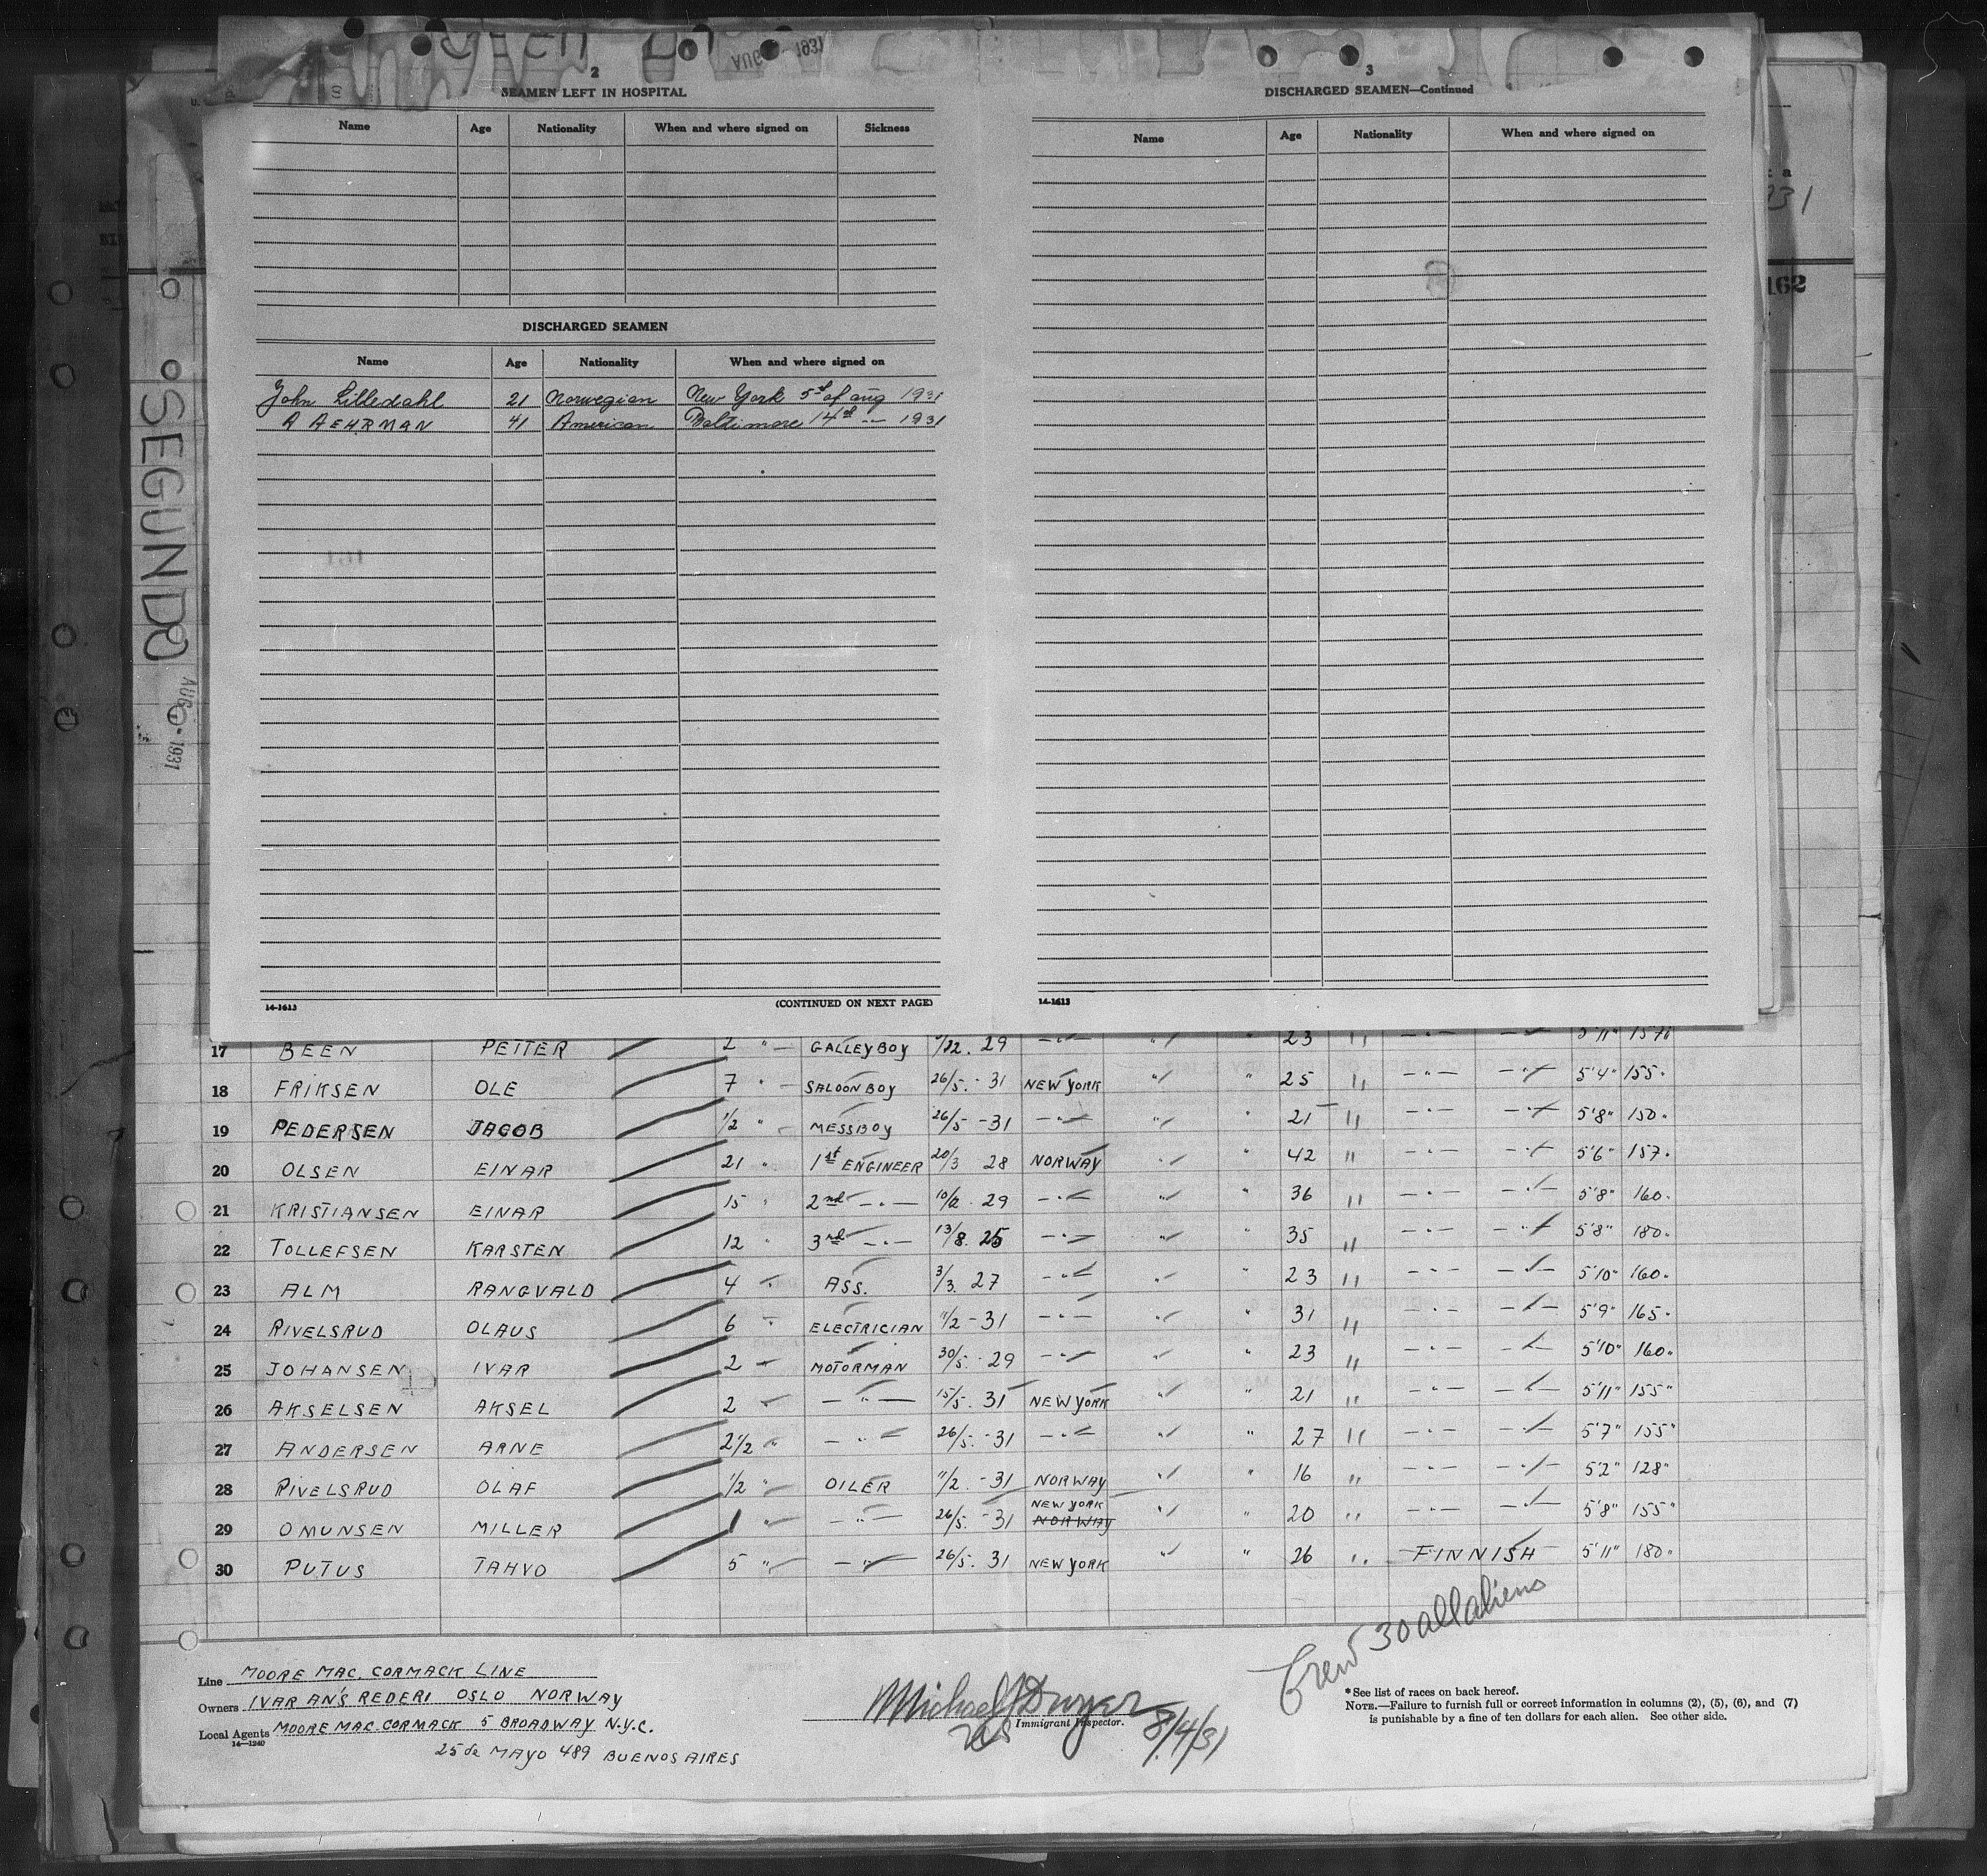 AUG 1931
2
SEAMEN LEFT IN HOSPITAL
Name Age Nationality When and where signed on Sickness
DISCHARGED SEAMEN
Name Age Nationality When and where signed on
John Lilledahl 21 Norwegian New York 5th of aug 1931
A AEHRMAN 41 American Baltimore 14th -"- 1931
14-1613 (CONTINUED ON NEXT PAGE)
3
DISCHARGED SEAMEN—Continued
Name Age Nationality When and where signed on
14-1613
162
SEGUNDO
AUG 1931
17 BEEN PETTER 2 " GALLEY BOY 29 -"- " " 23 " -"- -"- 5'11" 157"
18 FRIKSEN OLE 7 " SALOON BOY 26/5. - 31 NEW YORK " " 25 " -"- -"- 5'4" 155"
19 PEDERSEN JACOB 1/2 " MESSBOY 26/5 - 31 -"- " " 21 " -"- -"- 5'8" 150"
20 OLSEN EINAR 21 " 1st ENGINEER 20/3 28 NORWAY " " 42 " -"- -"- 5'6" 157"
21 KRISTIANSEN EINAR 15 " 2nd -"- 10/12 - 29 -"- " " 36 " -"- -"- 5'8" 160"
22 TOLLEFSEN KARSTEN 12 " 3rd -"- 13/8. 25 -"- " " 35 " -"- -"- 5'8" 180"
23 ALM RANGVALD 4 " ASS. 3/3. 27 -"- " " 23 " -"- -"- 5'10" 160"
24 RIVELSRUD OLAUS 6 " ELECTRICIAN 11/2 - 31 -"- " " 31 " -"- -"- 5'9" 165"
25 JOHANSEN IVAR 2 " MOTORMAN 30/5. - 29 -"- " " 23 " -"- -"- 5'10" 160"
26 AKSELSEN AKSEL 2 " -"- 15/5. 31 NEW YORK " " 21 " -"- -"- 5'11" 155"
27 ANDERSEN ARNE 2 1/2 " -"- 26/5. - 31 -"- " " 27 " -"- -"- 5'7" 155"
28 RIVELSRUD OLAF 1/2 " OILER 11/2. - 31 NORWAY " " 16 " -"- -"- 5'2" 128"
29 OMUNSEN MILLER 1 " -"- 26/5. - 31 NEW YORK NORWAY " " 20 " -"- -"- 5'8" 155"
30 PUTUS TAHVO 5 " -"- 26/5. 31 NEW YORK " " 26 " FINNISH 5'11" 180"
Crew 30 all aliens
Line MOORE MAC. CORMACK LINE
Owners IVAR AN'S REDERI OSLO NORWAY
Local Agents MOORE MAC. CORMACK 5 BROADWAY N.Y.C.
14—1240
25 de MAYO 489 BUENOS AIRES
Michael J Dwyer
Immigrant Inspector.
8/4/31
*See list of races on back hereof.
NOTE.—Failure to furnish full or correct information in columns (2), (5), (6), and (7)
is punishable by a fine of ten dollars for each alien. See other side.